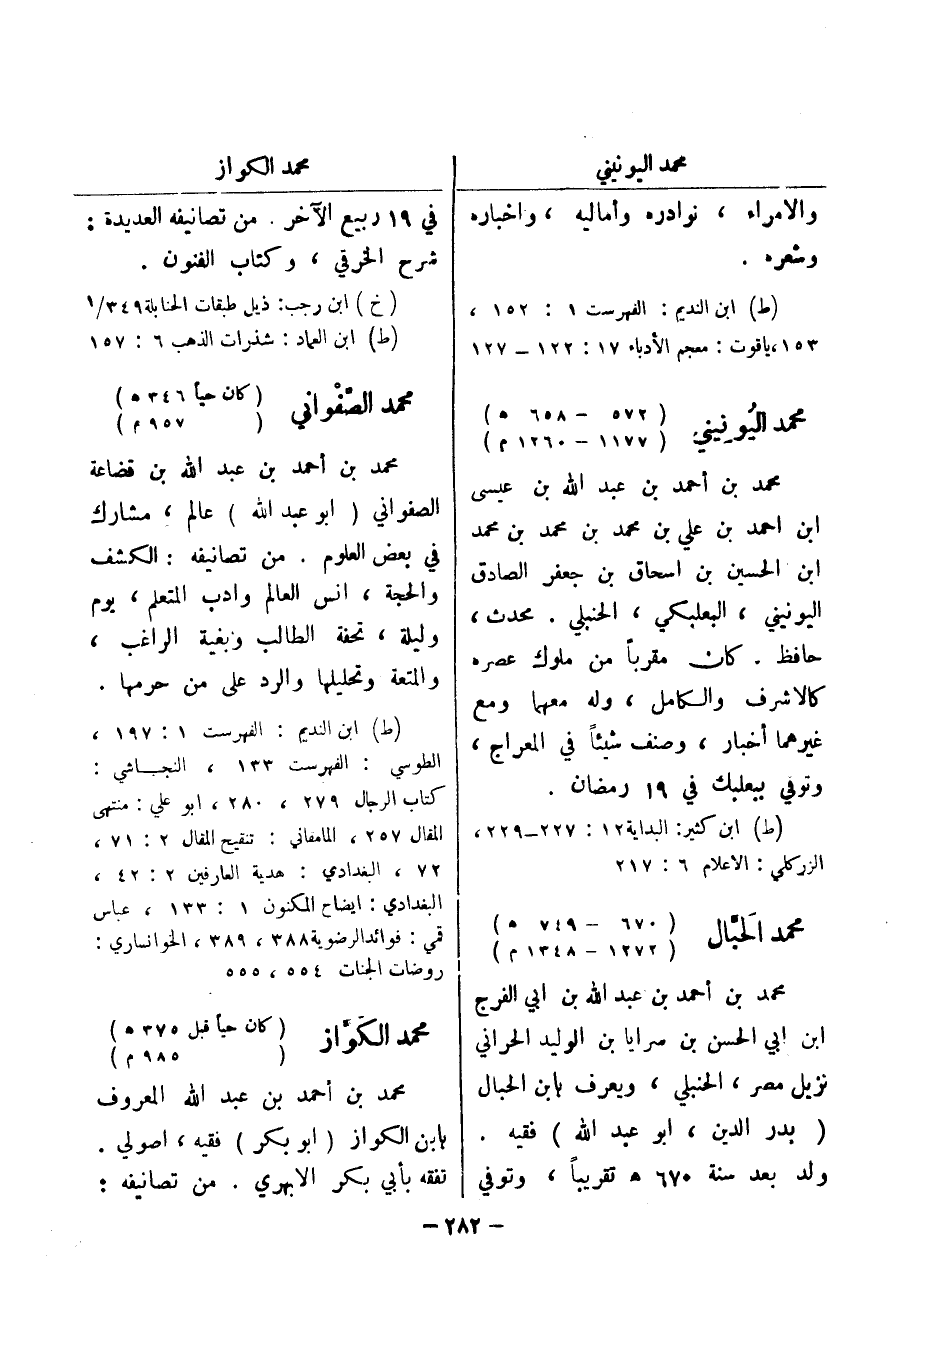 محمد اليونيني
والامراء ، نوادره وأماليه ، واخباره
وشعره .
(ط) ابن النديم : الفهرست ١ : ١٥٢ ،
١٥٣،ياقوت : معجم الأدباء ١٧ : ١٢٢ – ١٢٧
محمد اليُونِيني ( ٥٧٢ – ٦٥٨ ه )
( ١١٧٧ – ١٢٦٠ م )
محمد بن أحمد بن عبد الله بن عيسى
ابن احمد بن علي بن محمد بن محمد بن محمد
ابن الحسين بن اسحاق بن جعفر الصادق
اليونيني ، البعلبكي ، الحنبلي . محدث ،
حافظ . كان مقرباً من ملوك عصره
كالاشرف والكامل ، وله معهما ومع
غيرهما أخبار ، وصنف شيئاً في المعراج ،
وتوفي ببعلبك في ١٩ رمضان .
(ط) ابن كثير: البداية١٢ : ٢٢٧–٢٢٩،
الزركلي : الاعلام ٦ : ٢١٧
محمد الحَبَّال ( ٦٧٠ – ٧٤٩ ه )
( ١٢٧٢ – ١٣٤٨ م )
محمد بن أحمد بن عبد الله بن ابي الفرج
ابن ابي الحسن بن سرايا بن الوليد الحراني
نزيل مصر ، الحنبلي ، ويعرف بابن الحبال
( بدر الدين ، ابو عبد الله ) فقيه .
ولد بعد سنة ٦٧٠ ه تقريباً ، وتوفي
محمد الكواز
في ١٩ ربيع الآخر . من تصانيفه العديدة :
شرح الخرقي ، وكتاب الفنون .
( خ ) ابن رجب: ذيل طبقات الحنابلة١/٣٤٩
(ط) ابن العماد : شذرات الذهب ٦ : ١٥٧
محمد الصَّفْواني ( كان حياً ٣٤٦ ه )
( ٩٥٧ م )
محمد بن أحمد بن عبد الله بن قضاعة
الصفواني ( ابو عبد الله ) عالم ، مشارك
في بعض العلوم . من تصانيفه : الكشف
والحجة ، انس العالم وادب المتعلم ، يوم
وليلة ، تحفة الطالب وبغية الراغب ،
والمتعة وتحليلها والرد على من حرمها .
(ط) ابن النديم : الفهرست ١ : ١٩٧ ،
الطوسي : الفهرست ١٣٣ ، النجاشي :
كتاب الرجال ٢٧٩ ، ٢٨٠ ، ابو علي : منتهى
المقال ٢٥٧ ، المامقاني : تنقيح المقال ٢ : ٧١ ،
٧٢ ، البغدادي : هدية العارفين ٢ : ٤٢ ،
البغدادي : ايضاح المكنون ١ : ١٣٣ ، عباس
قمي : فوائدالرضوية٣٨٨ ، ٣٨٩ ، الخوانساري :
روضات الجنات ٥٥٤ ، ٥٥٥
محمد الكَوَّاز ( كان حياً قبل ٣٧٥ ه )
( ٩٨٥ م )
محمد بن أحمد بن عبد الله المعروف
بابن الكواز ( ابو بكر ) فقيه ، اصولي .
تفقه بأبي بكر الابهري . من تصانيفه :
– ٢٨٢ –